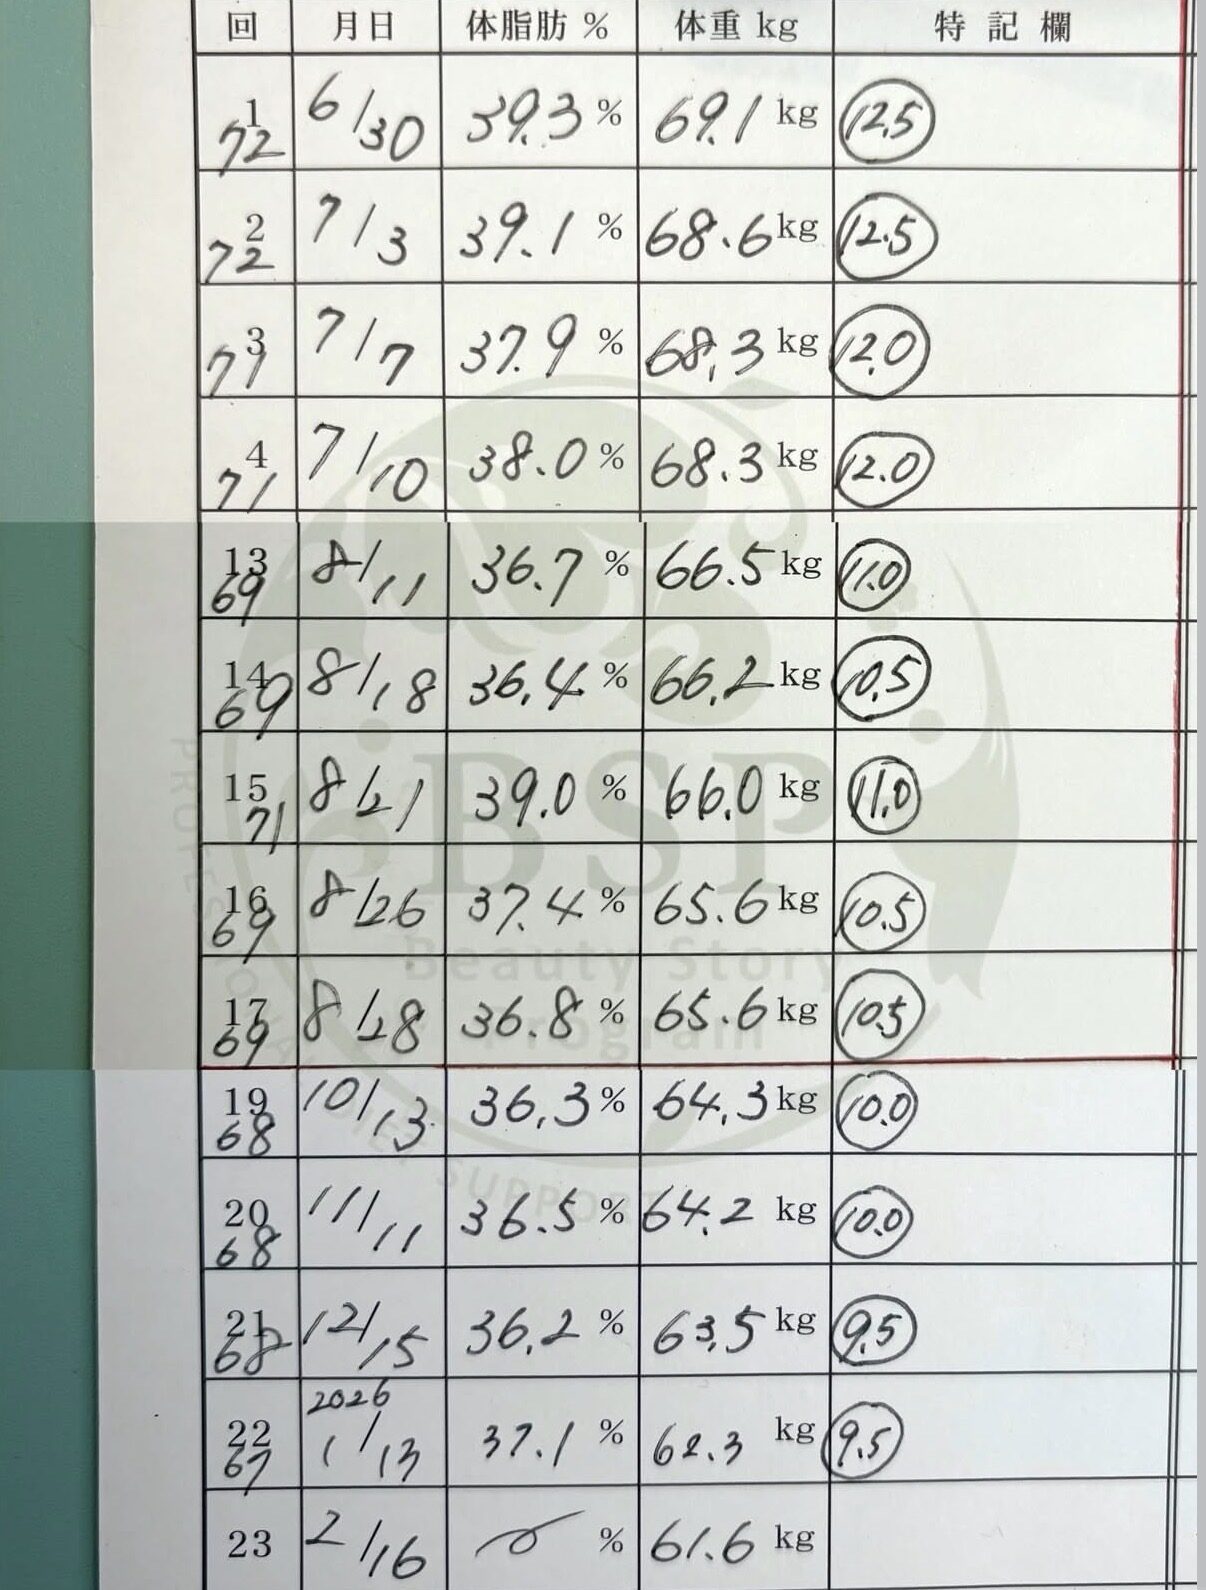 回 月日 体脂肪 % 体重 kg 特記欄
1 72 6/30 39.3 % 69.1 kg 12.5
2 72 7/3 39.1 % 68.6 kg 12.5
3 71 7/7 37.9 % 68.3 kg 12.0
4 71 7/10 38.0 % 68.3 kg 12.0
13 69 8/11 36.7 % 66.5 kg 11.0
14 69 8/18 36.4 % 66.2 kg 10.5
15 71 8/21 39.0 % 66.0 kg 11.0
16 69 8/26 37.4 % 65.6 kg 10.5
17 69 8/28 36.8 % 65.6 kg 10.5
19 68 10/13 36.3 % 64.3 kg 10.0
20 68 11/11 36.5 % 64.2 kg 10.0
21 68 12/15 36.2 % 63.5 kg 9.5
22 67 2026 1/13 37.1 % 62.3 kg 9.5
23 2/16 % 61.6 kg
BSP
Beauty Story
Program
SUPPORT